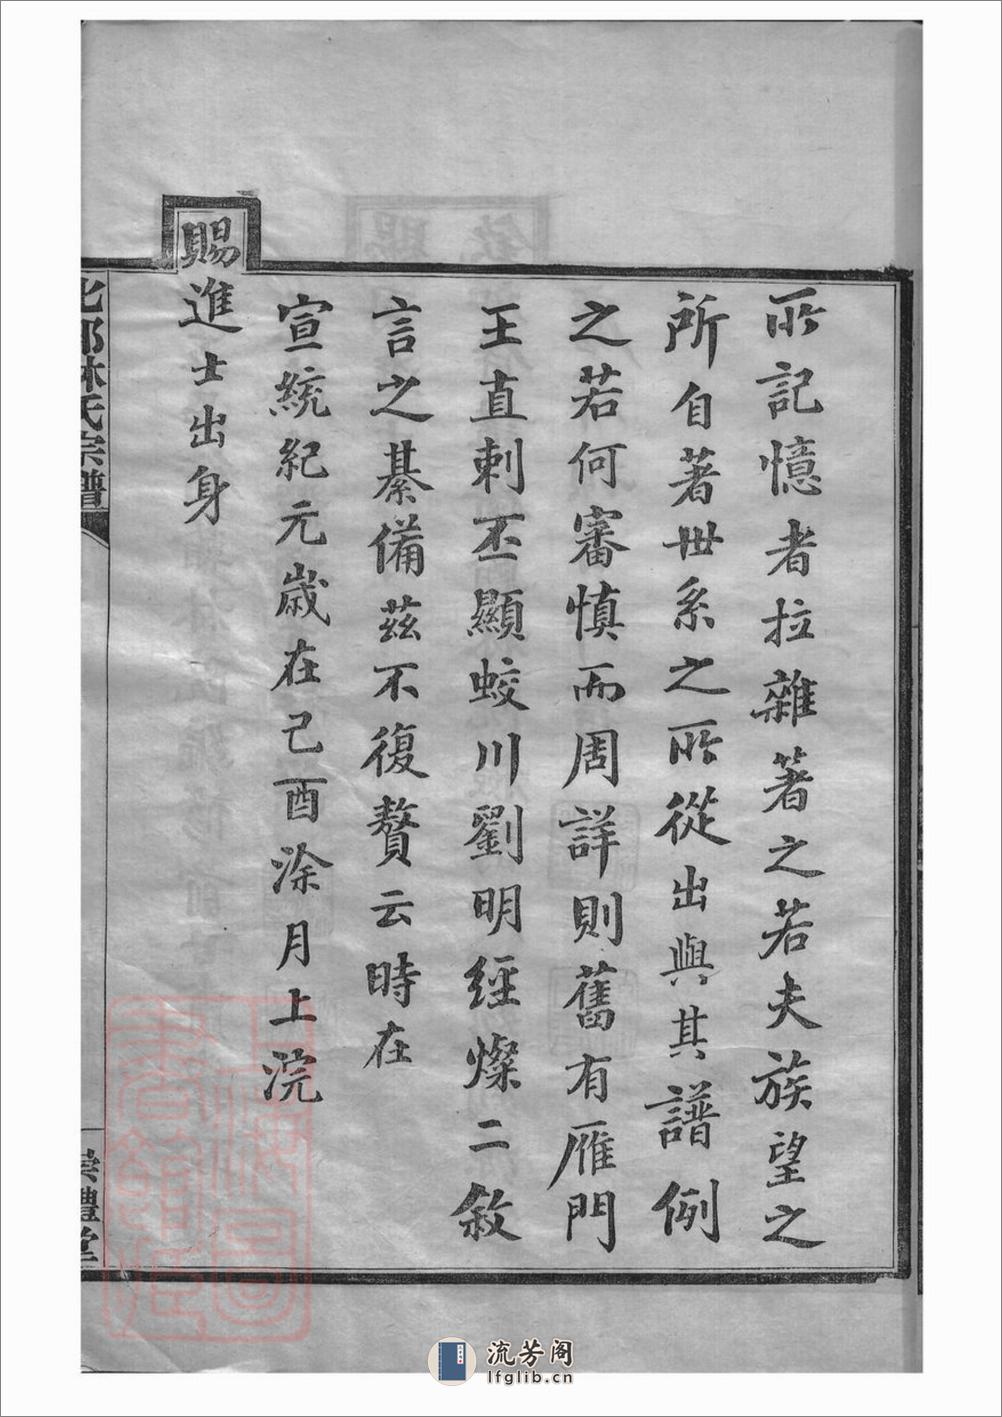 所記憶者拉雜著之若夫族望之
所自著世系之所從出與其譜例
之若何審慎而周詳則舊有雁門
王直刺丕顯蛟川劉明經燦二敘
言之綦備茲不復贅云時在
宣統紀元歲在己酉涂月上浣
賜進士出身
林氏宗譜
崇禮堂
流芳阁
lfglib.cn